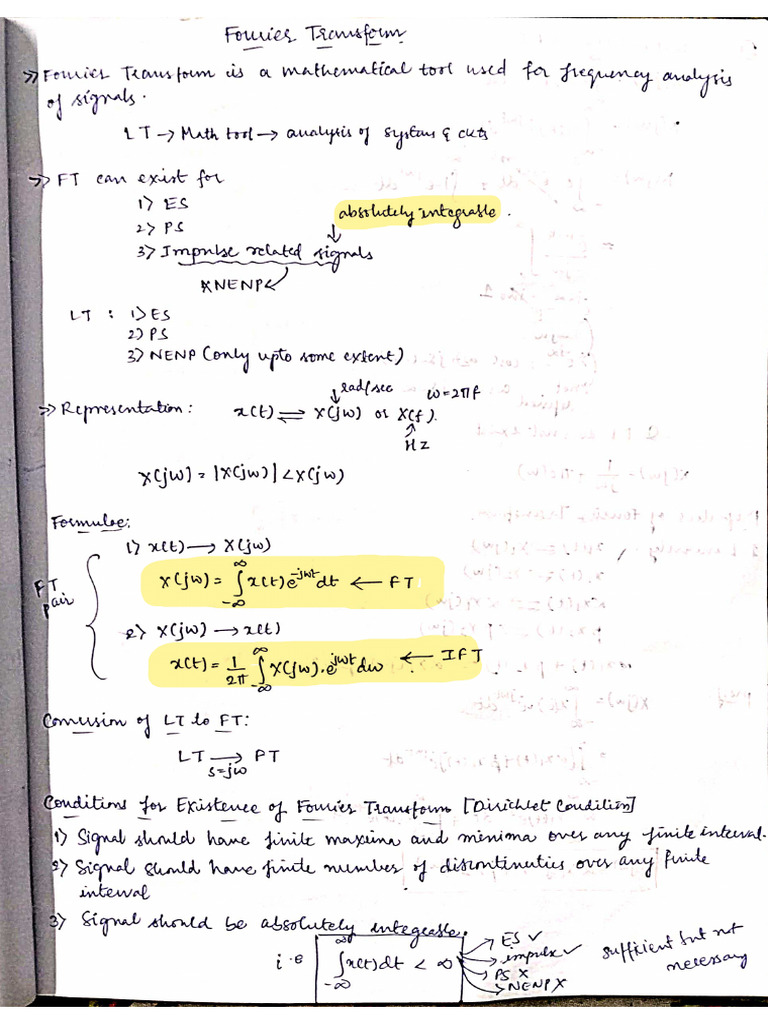 Fourier Transform
>> Fourier Transform is a mathematical tool used for frequency analysis
of signals.
LT → Math tool → analysis of systems & ckts
>> FT can exist for
1> ES
absolutely integrable.
2> PS
3> Impulse related signals
XNENP
LT : 1> ES
2) PS
3> NENP (only upto some extent)
rad/sec ω=2πf
>> Representation: x(t) ⇌ X(jω) or X(f).
Hz
X(jω) = |X(jω)| ∠X(jω)
Formulae:
1> x(t) → X(jω)
FT pair
X(jω) = ∫_{-∞}^{∞} x(t) e^{-jωt} dt ← FT
2> X(jω) → x(t)
x(t) = 1/2π ∫_{-∞}^{∞} X(jω). e^{jωt} dω ← IFT
Conversion of LT to FT:
LT → FT
s=jω
Conditions for Existence of Fourier Transform [Dirichlet Condition]
1) Signal should have finite maxima and minima over any finite interval.
2) Signal should have finite number of discontinuities over any finite
interval
3) Signal should be absolutely integeable.
i.e ∫_{-∞}^{∞} |x(t)| dt < ∞
ES ✓
impulse ✓
PS X
NENP X
sufficient but not
necessary